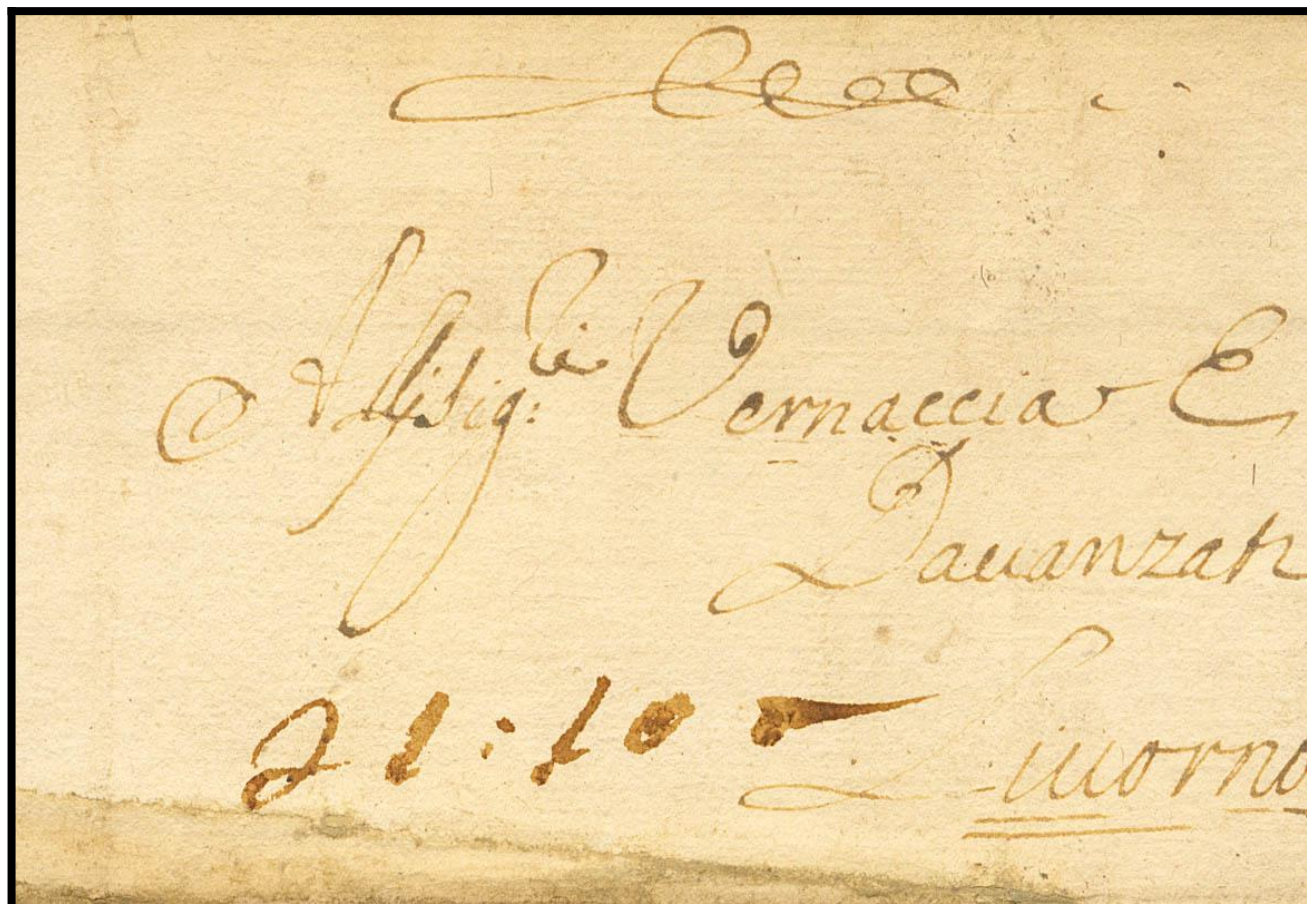 Alli Sig:ri Vernaccia E
Dauanzati
21:10
Liuorno